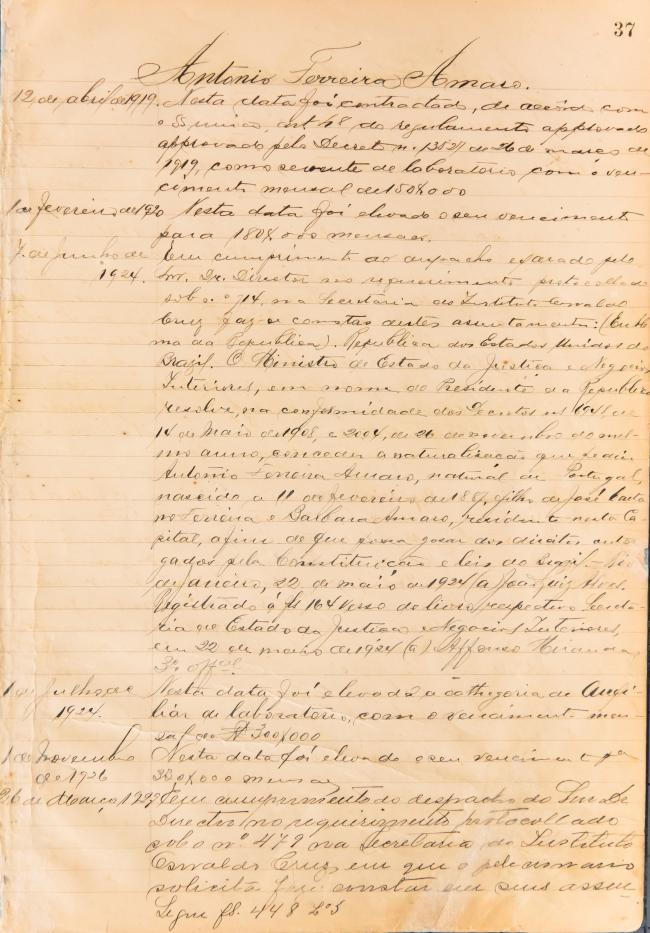 37
Antonio Ferreira Amaro.
12 de abril de 1919. Nesta data foi contractado, de acôrdo com
o § unico, art 48 do regulamento approvado
approvado pelo Decreto n. 13527 de 26 de março de
1919, como servente de laboratorio com o ven-
cimento mensal de 150$000
1 de fevereiro de 1920 Nesta data foi elevado o seu vencimento
para 180$000 mensaes.
7 de Junho de Em cumprimento ao despacho exarado pelo
1924. Snr. Dr. Director no requerimento protocollado
sob o nº 914, na Secretaria do Instituto Oswaldo
Cruz faz-se constar destes assentamentos: (Emble
ma da Republica). Republica dos Estados Unidos do
Brazil. O Ministro de Estado da Justiça e Negocios
Interiores, em nome do Presidente da Republica
resolve, na conformidade dos Decretos de
14 de Maio de 1908, e 2004, de 26 de novembro do mes-
mo anno, conceder a naturalização que pediu
Antonio Ferreira Amaro, natural de Portugal,
nascido a 11 de fevereiro de filho de José
Ferreira e Barbara Amaro, residente nesta Ca-
pital, afim de que possa gosar dos direitos outor
gados pela Constituição e leis do Brazil.- Rio
de Janeiro, 22 de maio de 1924 (a) João Luiz Alves.
Registrado á fls 164 verso do livro respectivo Secre
taria de Estado da Justiça e Negocios Interiores,
em 22 de maio de 1924 (a) Affonso
3º offal
1 de Julho de Nesta data foi elevado á cathegoria de Auxi
1924. liar de laboratorio, com o vencimento men
sal de 300$000
1 de Novembro Nesta data foi elevado o seu vencimento pª
de 1926 320$000 mensaes
26 de Março Em cumprimento do despacho do Snr. Dr
Director no requerimento protocollado
sob o nº 479 na Secretaria do Instituto
Oswaldo Cruz, em que o peticionario
solicita fosse constar em seus assen
Segue fls. 448 Lº5